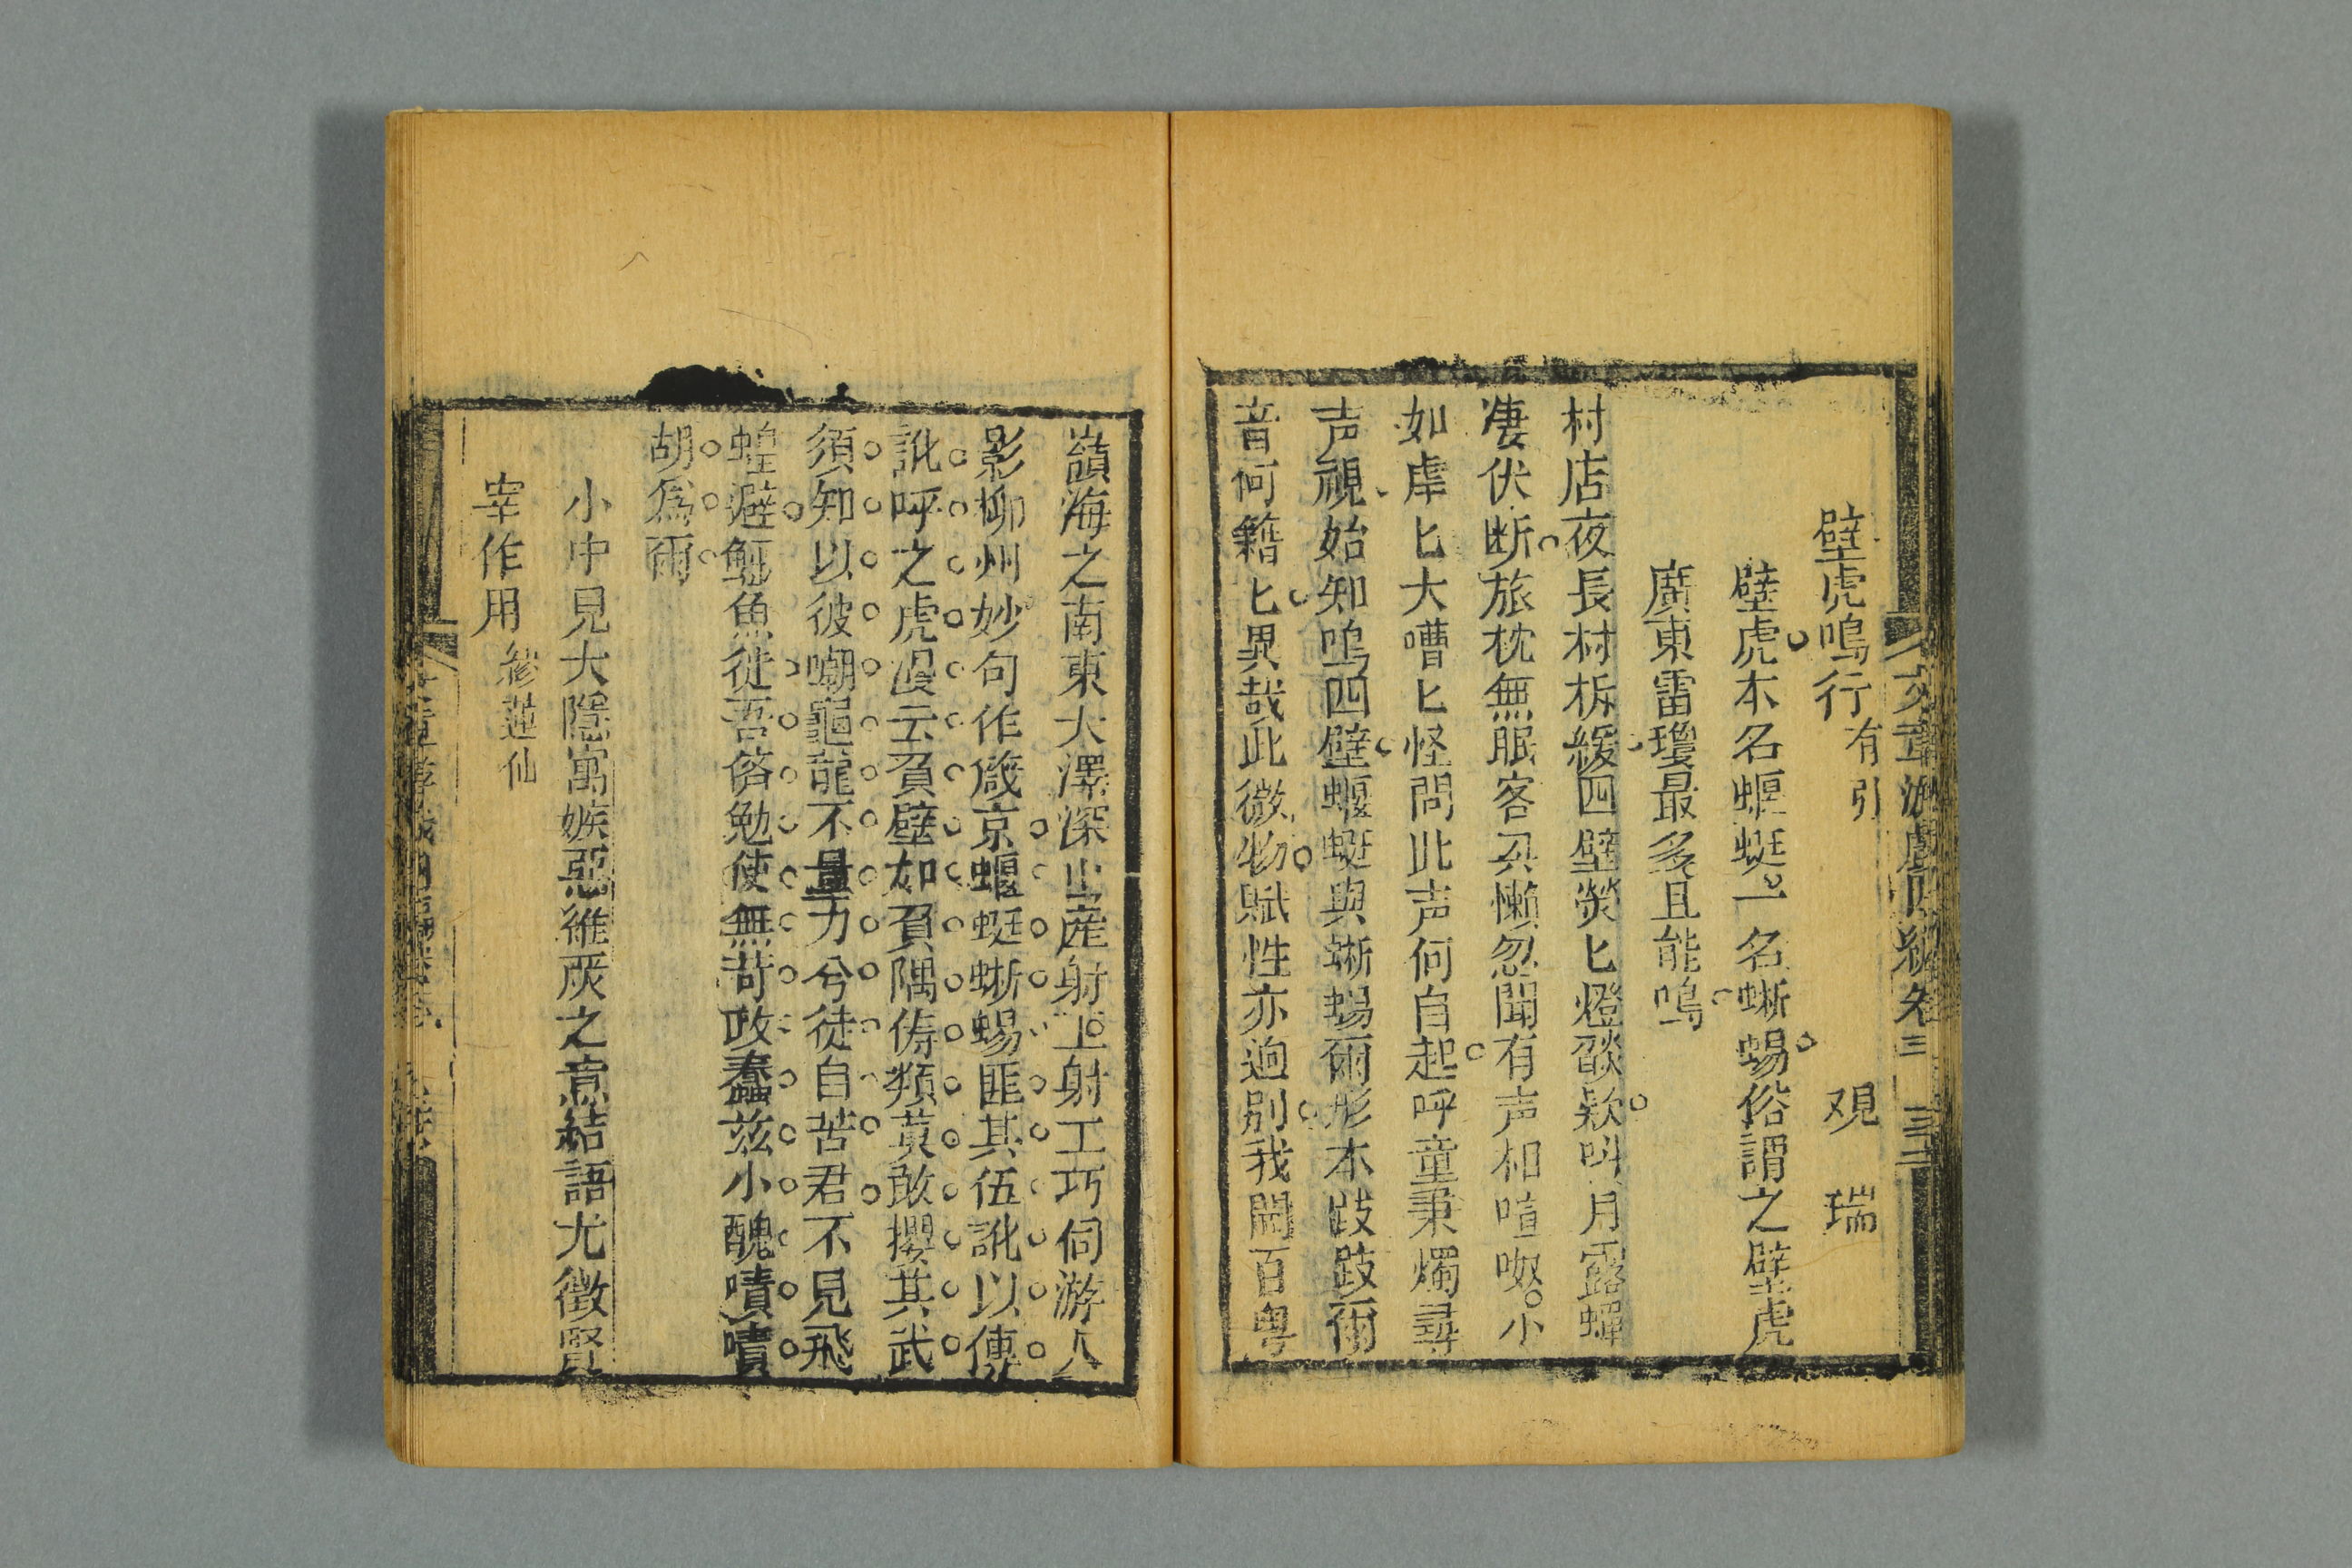 文章游戲四編卷三 三十三
壁虎鳴行有引 觀瑞
壁虎本名蝘蜓一名蜥蜴俗謂之壁虎
廣東雷瓊最多且能鳴
村店夜長村柝緩四壁熒匕燈燄欵叫月露蟬
凄伏断旅枕無眠客弄懶忽聞有声相喧呶小
如虐匕大嘈匕怪問此声何自起呼童秉燭尋
声視始知鳴四壁蝘蜓與蜥蜴爾形本跂跂爾
音何籍匕異哉此微物賦性亦逈别我聞百粤
嶺海之南東大澤深山産射工射工巧伺游人
影柳州妙句作箴京蝘蜓蜥蜴匪其伍訛以傳
訛呼之虎漫云負壁如負隅儔類莫敢攖其武
須知以彼嘲龜龍不量力兮徒自苦君不見飛
蝗避鱷魚徙吾俗勉使無苛政蠢兹小醜嘖嘖
胡為爾
小中見大隱寓嫉惡維厥之意結語尤徵賢
宰作用 繆蓮仙